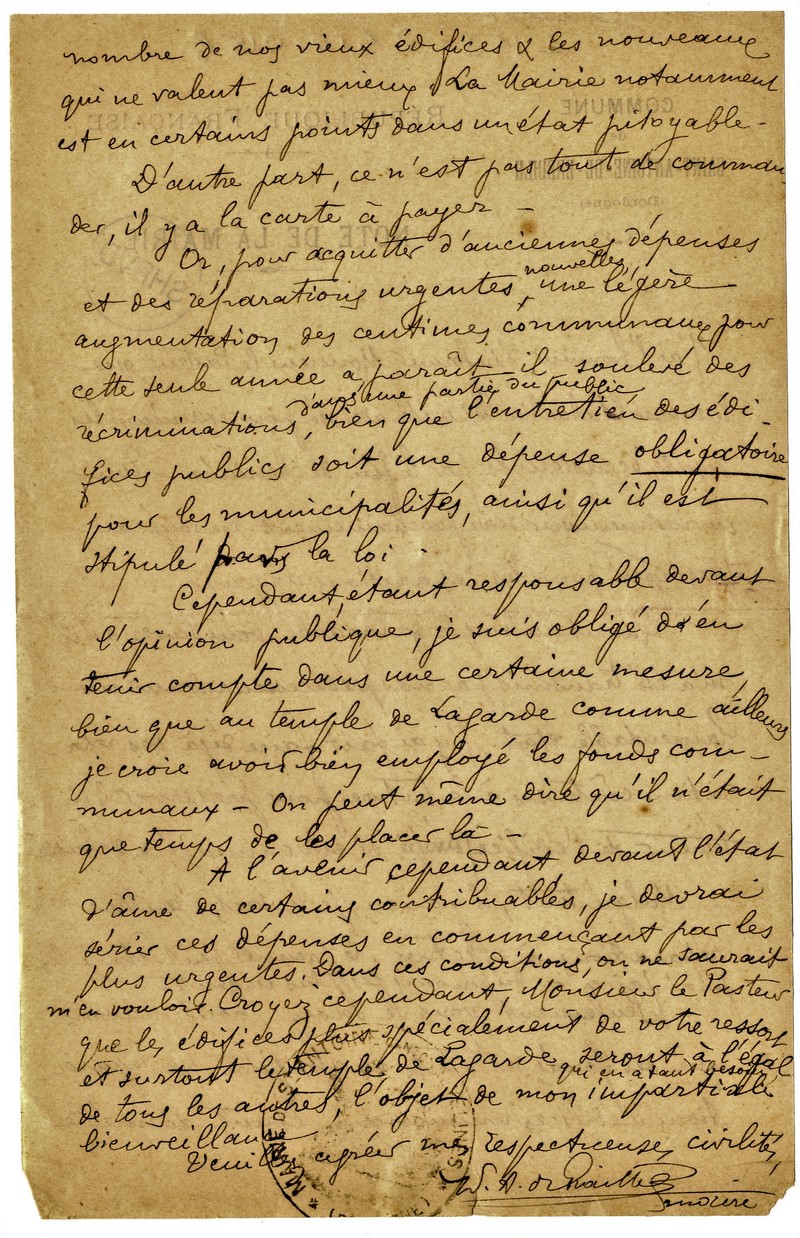 nombre de nos vieux édifices & les nouveaux
qui ne valent pas mieux. La Mairie notamment
est en certains points dans un état pitoyable -
D'autre part, ce n'est pas tout de comman-
der, il y a la carte à payer -
Or, pour acquitter d'anciennes dépenses
et des réparations urgentes nouvelles, une légère
augmentation des centimes communaux pour
cette seule année a paraît-il soulevé des
récriminations dans une partie du public, bien que l'entretien des édi-
fices publics soit une dépense obligatoire
pour les municipalités, ainsi qu'il est
stipulé dans la loi.
Cependant, étant responsable devant
l'opinion publique, je suis obligé d'en
tenir compte dans une certaine mesure,
bien que au temple de Lagarde comme ailleurs
je croie avoir bien employé les fonds com-
munaux - On peut même dire qu'il n'était
que temps de les placer là -
A l'avenir cependant, devant l'état
d'âme de certains contribuables, je devrai
sérier ces dépenses en commençant par les
plus urgentes. Dans ces conditions, on ne saurait
m'en vouloir. Croyez cependant, Monsieur le Pasteur
que les édifices plus spécialement de votre ressort
et surtout le temple de Lagarde qui en a tant besoin, seront à l'égal
de tous les autres, l'objet de mon impartiale
bienveillance
Veuillez agréer mes respectueuses civilités,
maire
COMMUNE
RÉPUBLIQUE FRANÇAISE
Dordogne